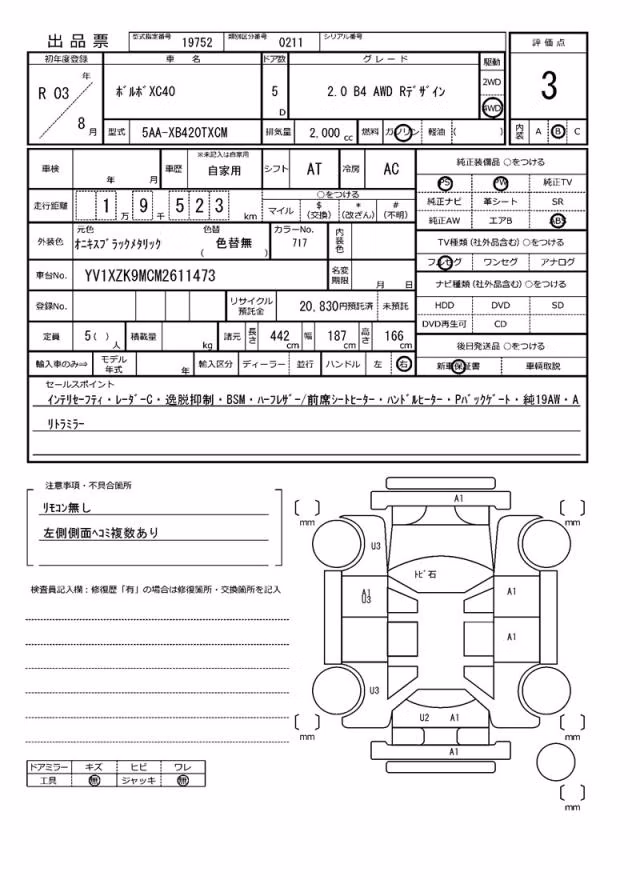 出品票 型式指定番号 19752 類別区分番号 0211 シリアル番号
初年度登録 車名 ドア数 グレード 駆動 評価点
R 03 年 8 月 ﾎﾞﾙﾎﾞXC40 5 D 2.0 B4 AWD Rﾃﾞｻﾞｲﾝ 2WD 4WD 3
型式 5AA-XB420TXCM 排気量 2,000 cc 燃料 ガソリン 軽油 ( ) 内装 A B C
車検 年 月 車歴 ※未記入は自家用 自家用 シフト AT 冷房 AC
走行距離 1 万 9 千 5 2 3 km ○をつける
マイル $ (交換) * (改ざん) # (不明)
外装色 元色 ｵﾆｷｽﾌﾞﾗｯｸﾒﾀﾘｯｸ 色替 ( 色替無 ) カラーNo. 717 内装色
車台No. YV1XZK9MCM2611473 名変期限 月 日
登録No. リサイクル預託金 20,830円預託済 未預託
定員 5( ) 人 積載量 kg 諸元 長さ 442 cm 幅 187 cm 高さ 166 cm
輸入車のみ⇒ モデル年式 年 輸入区分 ディーラー 並行 ハンドル 左 右
純正装備品 ○をつける
PS PW 純正TV
純正ナビ 革シート SR
純正AW エアB ABS
TV種類 (社外品含む) ○をつける
フルセグ ワンセグ アナログ
ナビ種類 (社外品含む) ○をつける
HDD DVD SD
DVD再生可 CD
後日発送品 ○をつける
新車保証書 車輌取説
セールスポイント
ｲﾝﾃﾘｾｰﾌﾃｨ・ﾚｰﾀﾞｰC・逸脱抑制・BSM・ﾊｰﾌﾚｻﾞｰ/前席ｼｰﾄﾋｰﾀｰ・ﾊﾝﾄﾞﾙﾋｰﾀｰ・Pﾊﾞｯｸｹﾞｰﾄ・純19AW・A
ﾘﾄﾗﾐﾗｰ
注意事項・不具合箇所
ﾘﾓｺﾝ無し
左側側面ﾍｺﾐ複数あり
検査員記入欄：修復歴「有」の場合は修復箇所・交換箇所を記入
ドアミラー キズ ヒビ ワレ
工具 無 ジャッキ 無
A1
mm mm
U3
ﾄﾋﾞ石
A1 U3 A1
A1
U3
U2 A1
mm mm
A1
mm